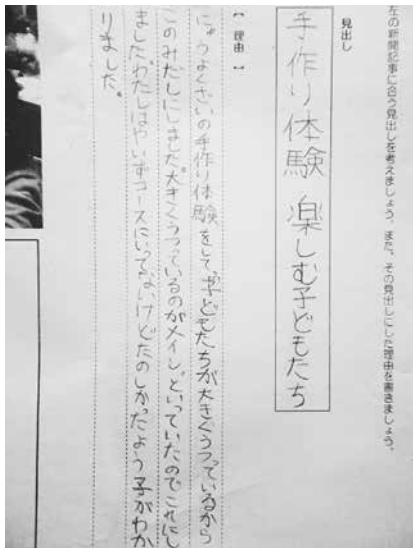 左の新聞記事に合う見出しを考えましょう。また、その見出しにした理由を書きましょう。
見出し
手作り体験 楽しむ子どもたち
【理由】
にゅうよくざいの手作り体験をして、子どもたちが大きくうつっているから
このみだしにしました。大きくうつっているのがメイン、といっていたのでこれにし
ました。わたしはやいずコースにいってないけどたのしかったよう子がわか
りました。